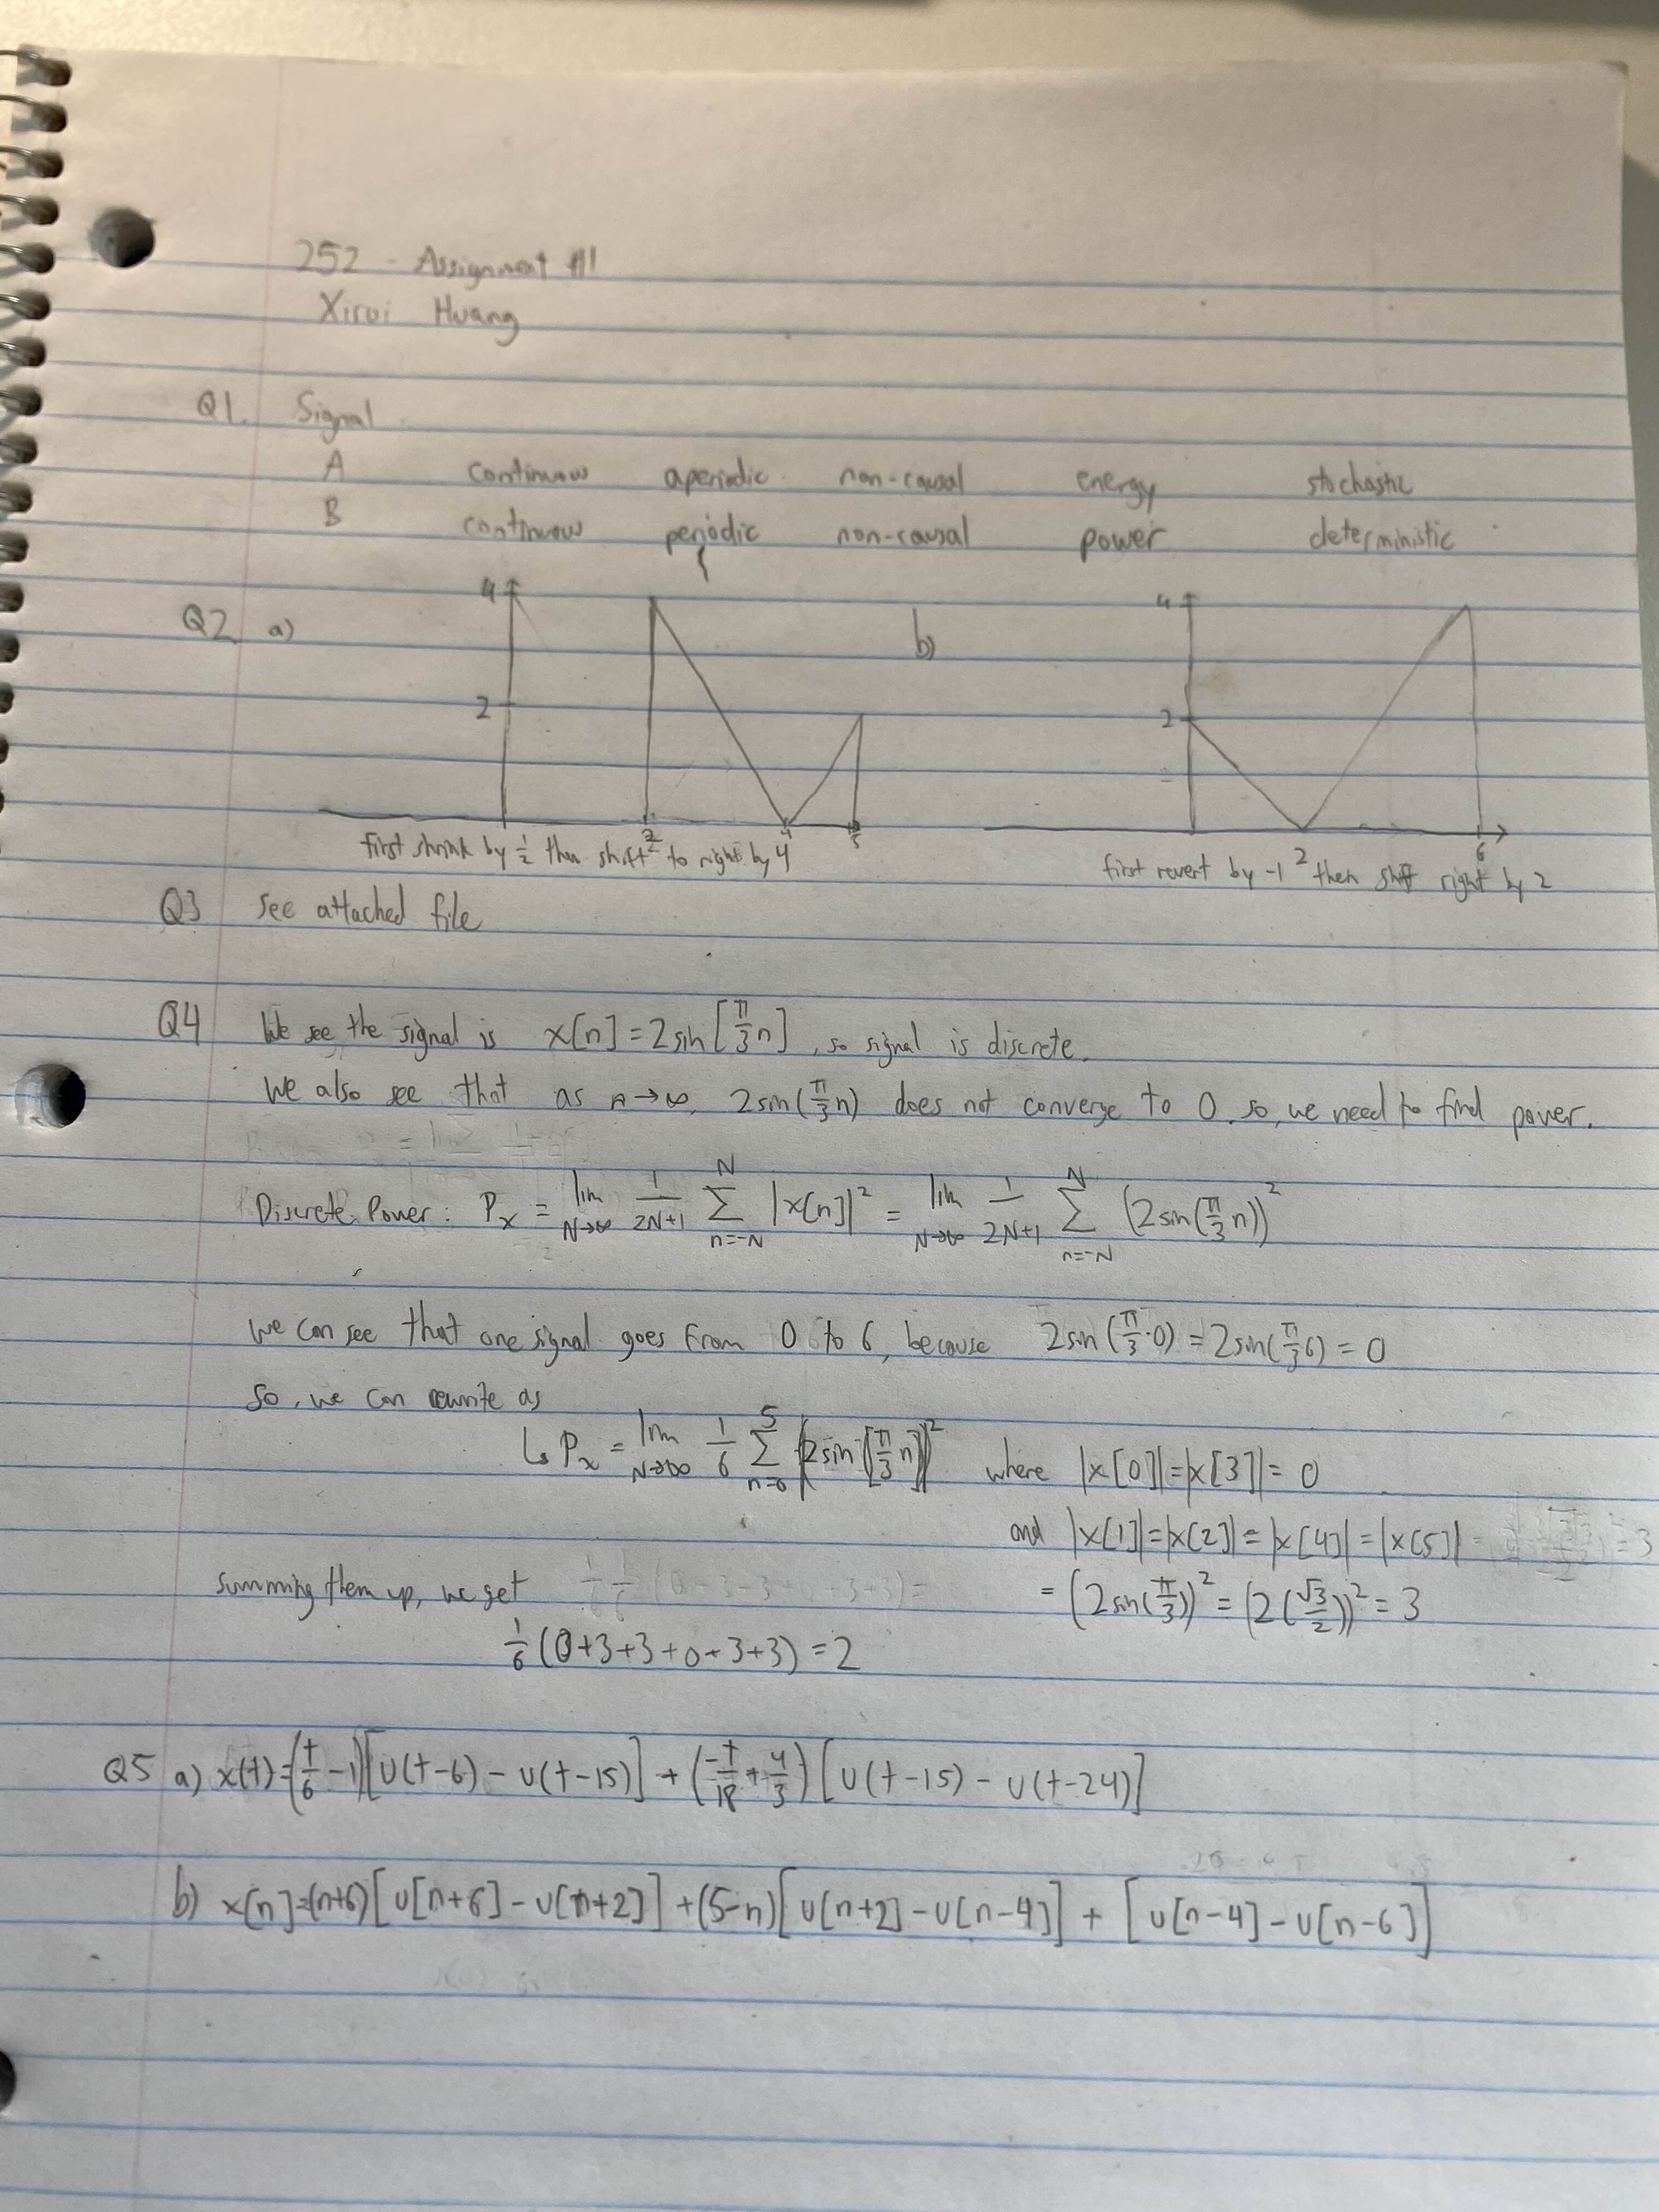 252 - Assignment #1
Xirui Huang
Q1. Signal
A continuous aperiodic non-causal energy stochastic
B continuous periodic non-causal power deterministic
Q2 a) 4 2 2 4 5
b) 4 2 2 6
first shrink by 1/2 then shift to right by 4
first revert by -1 then shift right by 2
Q3 see attached file
Q4 We see the signal is x[n] = 2 sin[π/3 n], so signal is discrete.
We also see that as n→∞, 2sin(π/3 n) does not converge to 0. so, we need to find power.
Discrete Power: Pₓ = lim N→∞ 1/(2N+1) Σ n=-N N |x[n]|² = lim N→∞ 1/(2N+1) Σ n=-N N (2 sin(π/3 n))²
we can see that one signal goes from 0 to 6, because 2sin(π/3·0) = 2sin(π/3 6) = 0
So, we can rewrite as
↳ Pₓ = lim N→∞ 1/6 Σ n=0 5 |2sin[π/3 n]|² where |x[0]|=|x[3]|= 0
and |x[1]|=|x[2]|=|x[4]|=|x[5]|
= (2sin(π/3))² = (2(√3/2))² = 3
summing them up, we get
1/6 (0+3+3+0+3+3) = 2
Q5 a) x(t)=(t/6 -1)[u(t-6) - u(t-15)] + (-t/18 + 4/3) [u(t-15) - u(t-24)]
b) x[n]=(n+6)[u[n+6] - u[n+2]] +(5-n)[u[n+2] - u[n-4]] + [u[n-4] - u[n-6]]